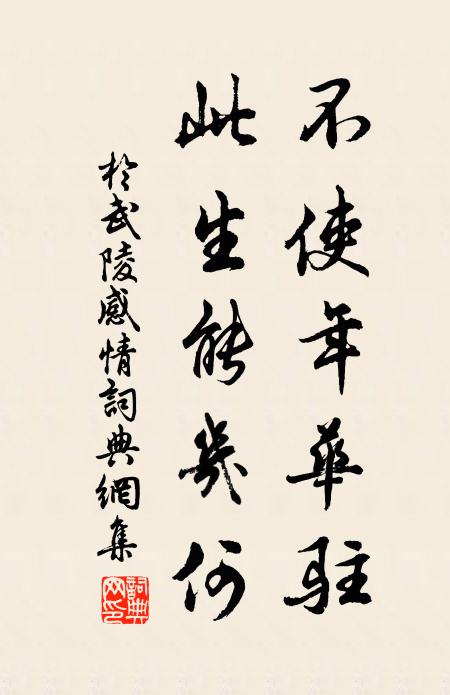 不使年華駐
此生能幾何
於武陵感情詞典網集
詞典网印